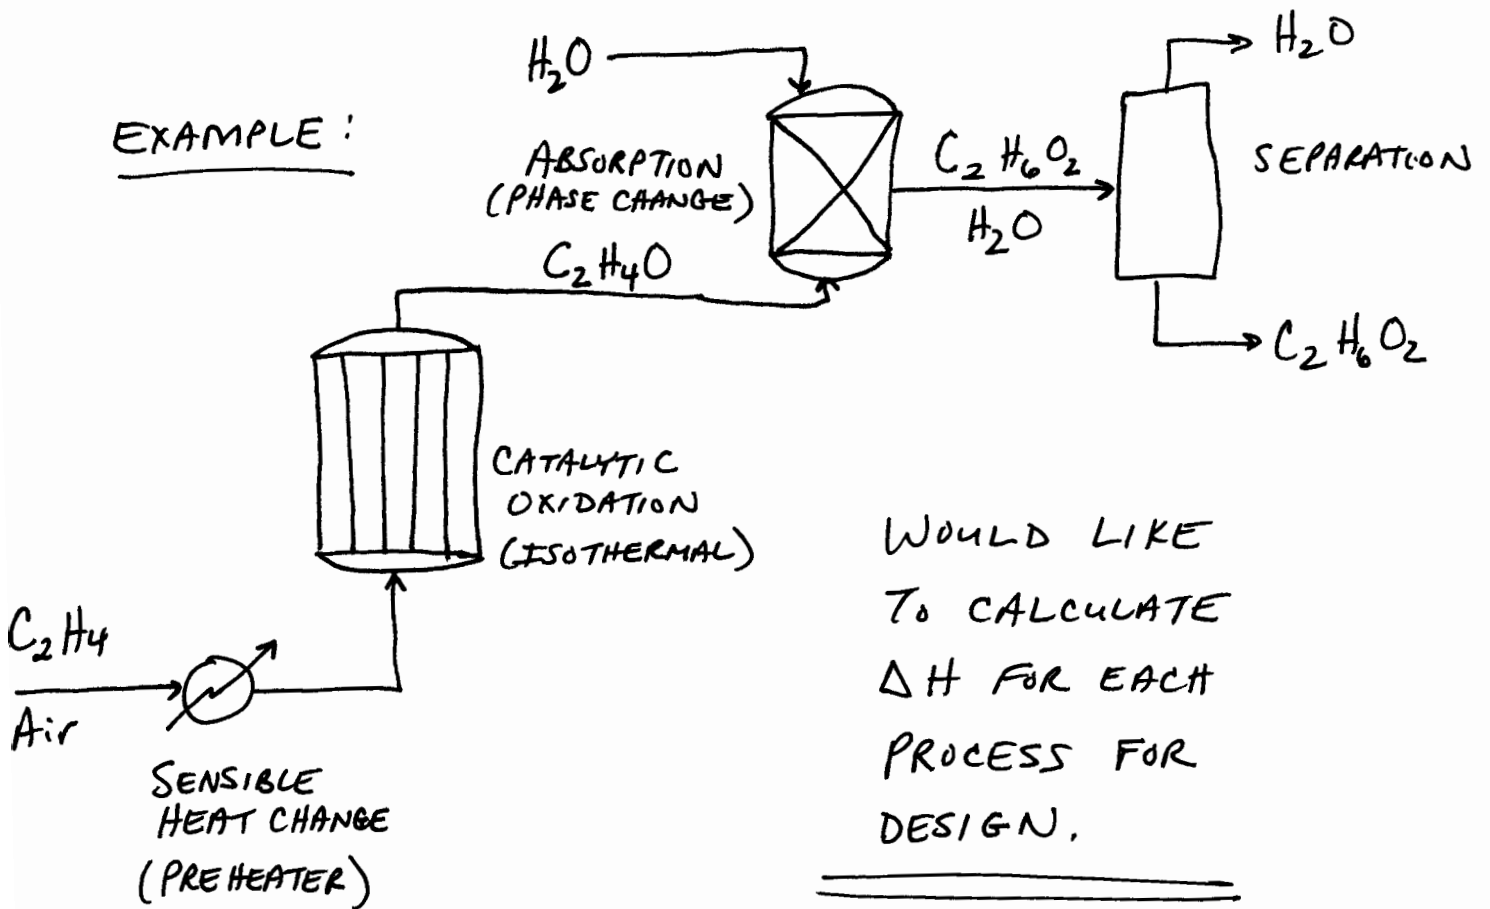 EXAMPLE:
H₂O
ABSORPTION
(PHASE CHANGE)
C₂H₄O
C₂H₆O₂
H₂O
H₂O
SEPARATION
C₂H₆O₂
CATALYTIC
OXIDATION
(ISOTHERMAL)
C₂H₄
Air
SENSIBLE
HEAT CHANGE
(PREHEATER)
WOULD LIKE
To CALCULATE
ΔH FOR EACH
PROCESS FOR
DESIGN.